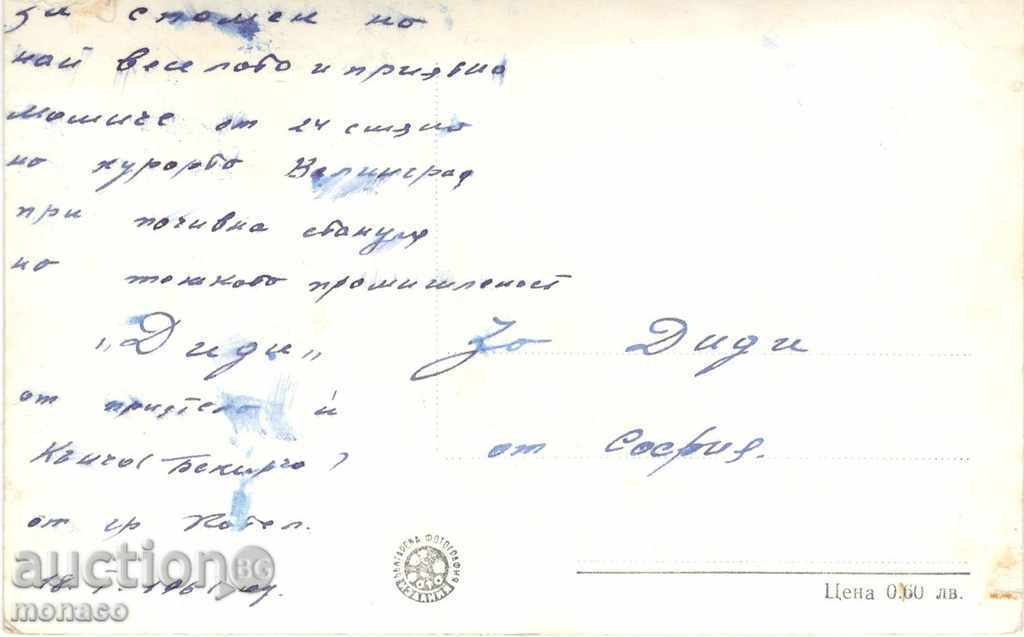 за спомен на
най веселото и приятно
момиче от 24 стая
на курорта Велинград
при почивна станция
на тежката промишленост
"Диди"
от приятеля ѝ
Кънчо (Бекирчо)
от гр Котел.
18. 1961 г.
За Диди
от София.
БЪЛГАРСКА ФОТОГРАФИЯ
ИЗДАНИЯ
Цена 0.60 лв.
auctionBG
monaco